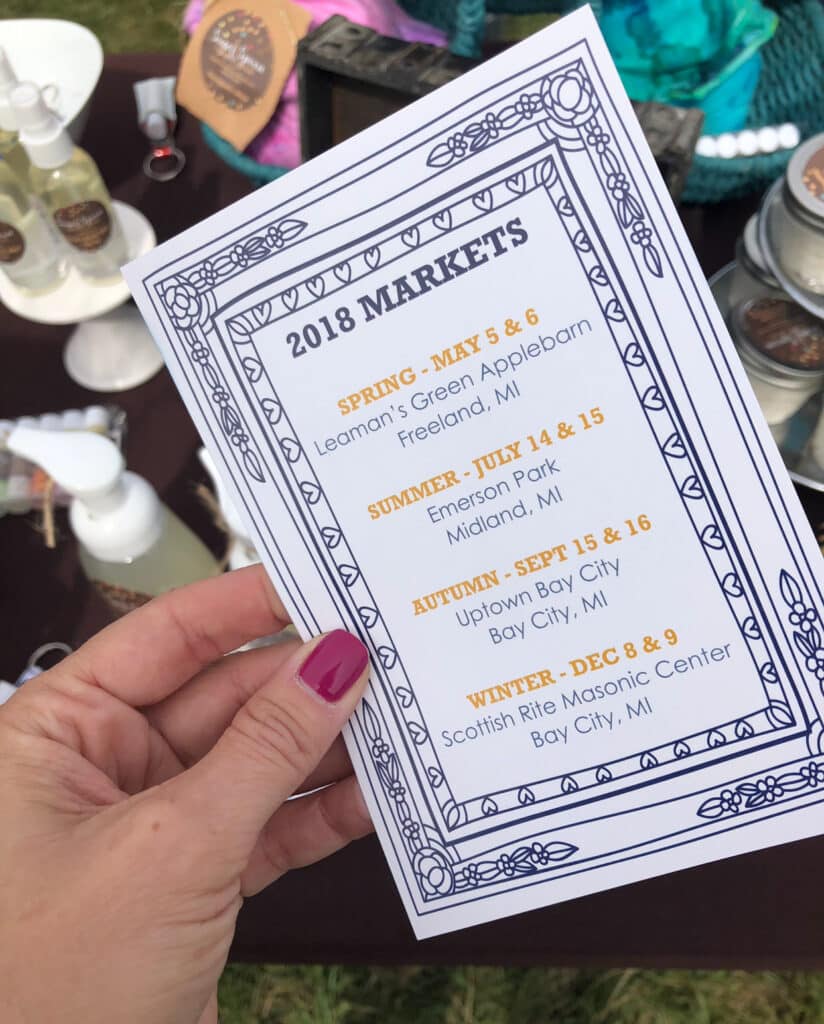 2018 MARKETS
SPRING - MAY 5 & 6
Leaman's Green Applebarn
Freeland, MI
SUMMER - JULY 14 & 15
Emerson Park
Midland, MI
AUTUMN - SEPT 15 & 16
Uptown Bay City
Bay City, MI
WINTER - DEC 8 & 9
Scottish Rite Masonic Center
Bay City, MI